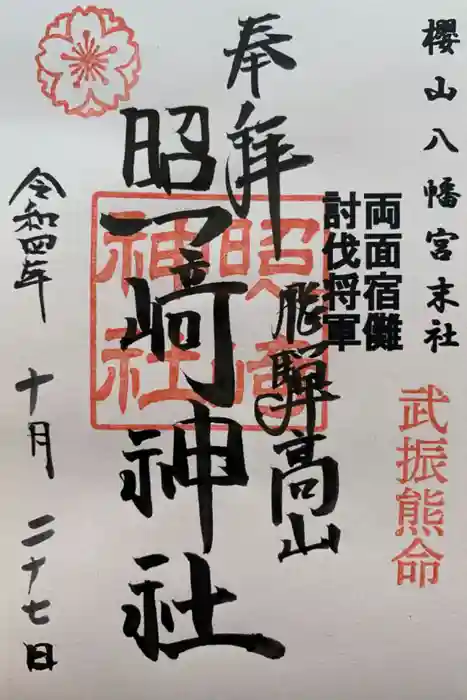 櫻山八幡宮末社
武振熊命
両面宿儺
討伐将軍
奉拝
飛騨高山
昭﨑神社
昭崎
神社
令和四年
十月
二十七日